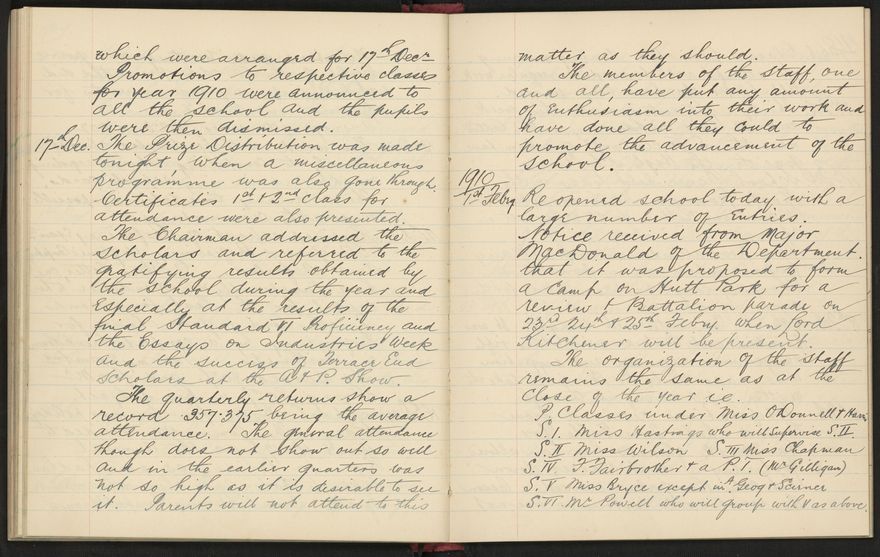 which were arranged for 17th Decr
Promotions to respective classes
for year 1910 were announced to
all the school and the pupils
were then dismissed.
17th Dec. The Prize Distribution was made
tonight when a miscellaneous
programme was also gone through.
Certificates 1st & 2nd class for
attendance were also presented.
The Chairman addressed the
scholars and referred to the
gratifying results obtained by
the school during the year and
especially at the results of the
final Standard VI Proficiency and
the Essays on Industries Week
and the success of Terrace End
scholars at the A & P. Show.
The quarterly returns show a
record 357.375 being the average
attendance. The general attendance
though does not show out so well
and in the earlier quarters was
not so high as it is desirable to see
it. Parents will not attend to this
matter as they should.
The members of the staff, one
and all, have put any amount
of Enthusiasm into their work and
have done all they could to
promote the advancement of the
school.
1910
1st Febry Reopened school today with a
large number of Entries.
Notice received from Major
MacDonald of the Department
that it was proposed to form
a Camp on Hutt Park for a
review & Battalion parade on
23rd 24th & 25th Febry. when Lord
Kitchener will be present.
The organization of the staff
remains the same as at the
close of the year i.e.
P. Classes under Miss O'Donnell &
S. I. Miss Hastings who will supervise S. II
S. II Miss Wilson S. III Miss Chapman
S. IV F. Fairbrother & a P.T. (Mr Gilligan)
S. V Miss Bryce except in Geog &
S. VI Mr Powell who will group with V as above